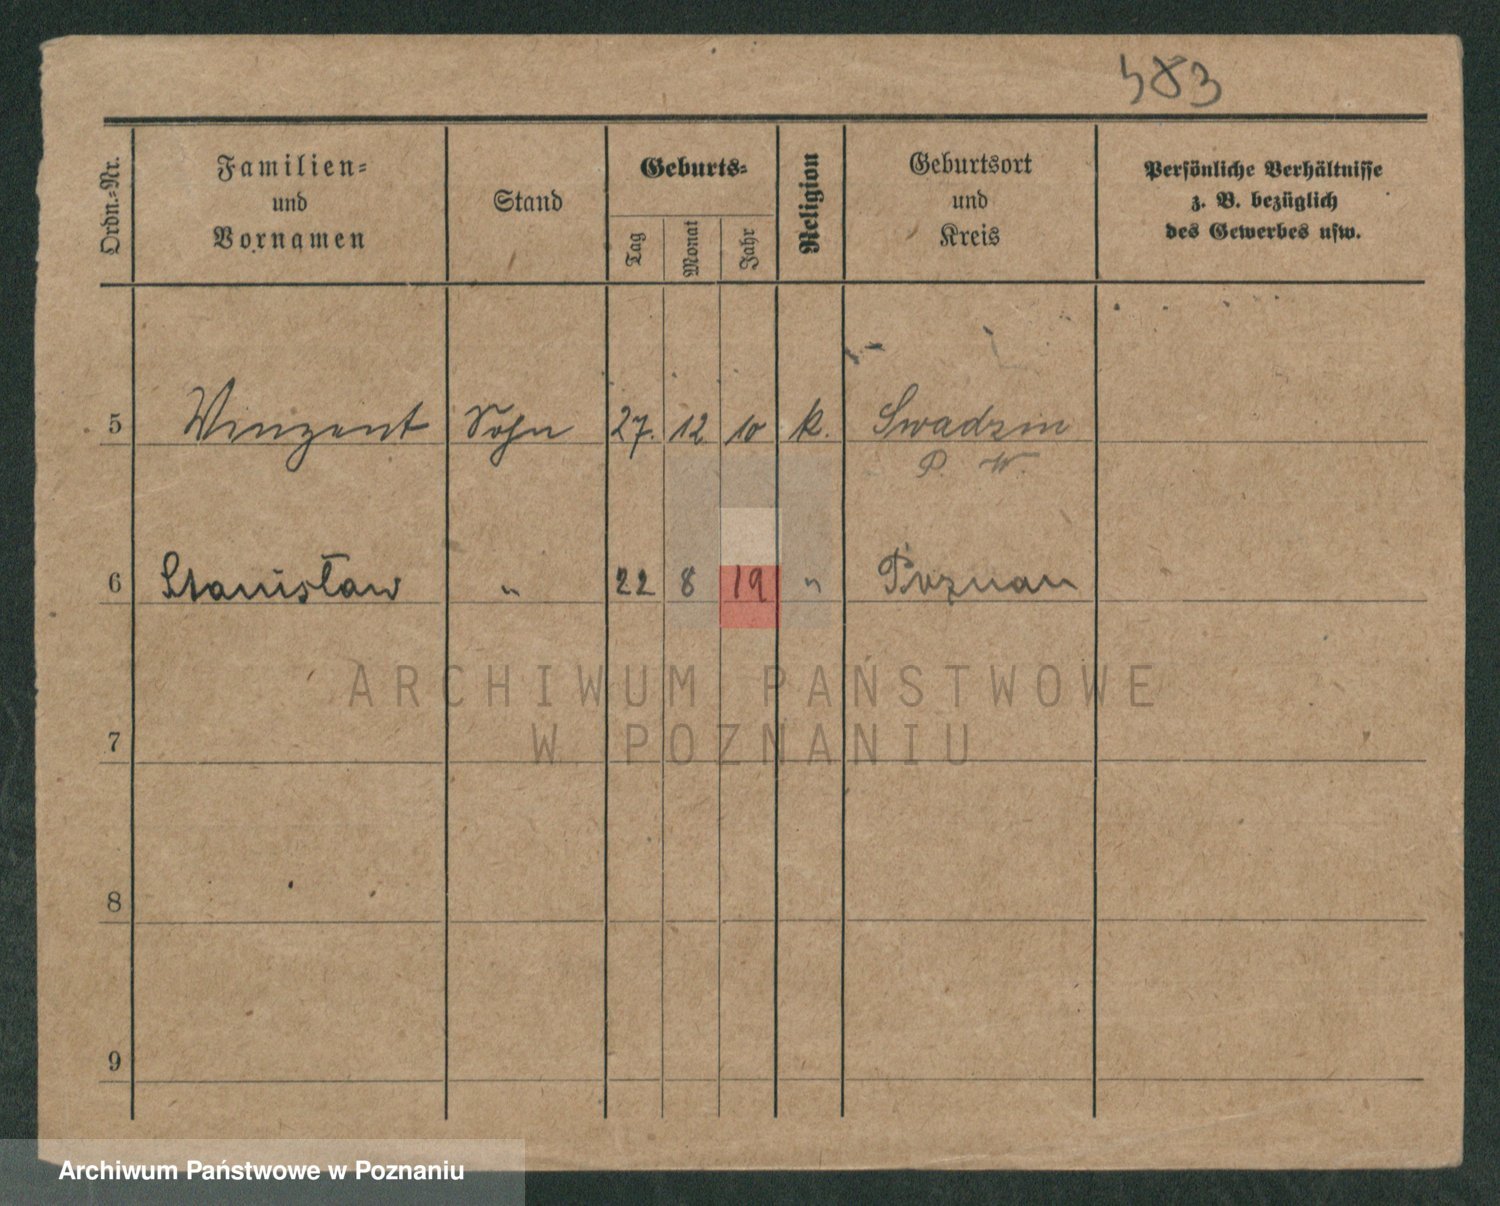 583
Ordn.-Nr.
Familien-
und
Vornamen
Stand
Geburts-
Tag
Monat
Jahr
Religion
Geburtsort
und
Kreis
Persönliche Verhältnisse
z. B. bezüglich
des Gewerbes usw.
5 Winzent Sohn 27. 12 10 k. Swadzin
P. W.
6 Stanisław " 22 8 19 " Poznan
ARCHIWUM PAŃSTWOWE
W POZNANIU
7
8
9
Archiwum Państwowe w Poznaniu